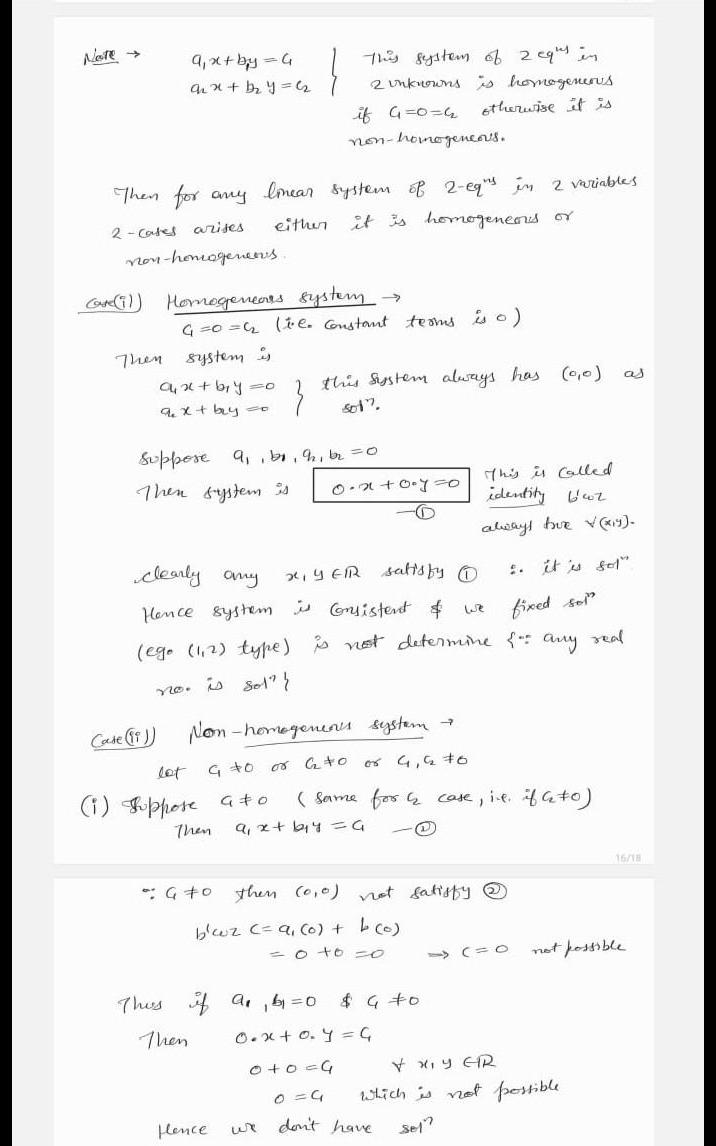 Note → a₁x + b₁y = c₁ } This system of 2 eqⁿˢ in
a₂x + b₂y = c₂ } 2 unknowns is homogeneous
if c₁=0=c₂ otherwise it is
non-homogeneous.
Then for any linear system of 2-eqⁿˢ in 2 variables
2-cases arises either it is homogeneous or
non-homogeneous.
Case(i)) Homogeneous system →
c₁=0=c₂ (i.e. constant terms is 0)
Then system is
a₁x + b₁y = 0 } this system always has (0,0) as
a₂x + b₂y = 0 } solⁿ.
Suppose a₁, b₁, a₂, b₂ = 0
Then system is 0·x + 0·y = 0 This is called
—① identity b'coz
always true ∀(x,y).
clearly any x, y ∈ ℝ satisfy ① ∴ it is solⁿ
Hence system is consistent & we fixed solⁿ
(ego (1,2) type) is not determine {∵ any real
no. is solⁿ}
Case(ii)) Non-homogenerus system →
let c₁≠0 or c₂≠0 or c₁,c₂≠0
(i) Suppose c₁≠0 (same for c₂ case, i.e. if c₂≠0)
Then a₁x + b₁y = c₁ —②
16/18
∵ c₁≠0 then (0,0) not satisfy ②
b'coz c = a₁(0) + b(0)
= 0 + 0 = 0 → c=0 not possible
Thus if a₁, b₁=0 & c₁≠0
Then 0·x + 0·y = c₁
0 + 0 = c₁ ∀ x, y ∈ ℝ
0 = c₁ which is not possible
Hence we don't have solⁿ